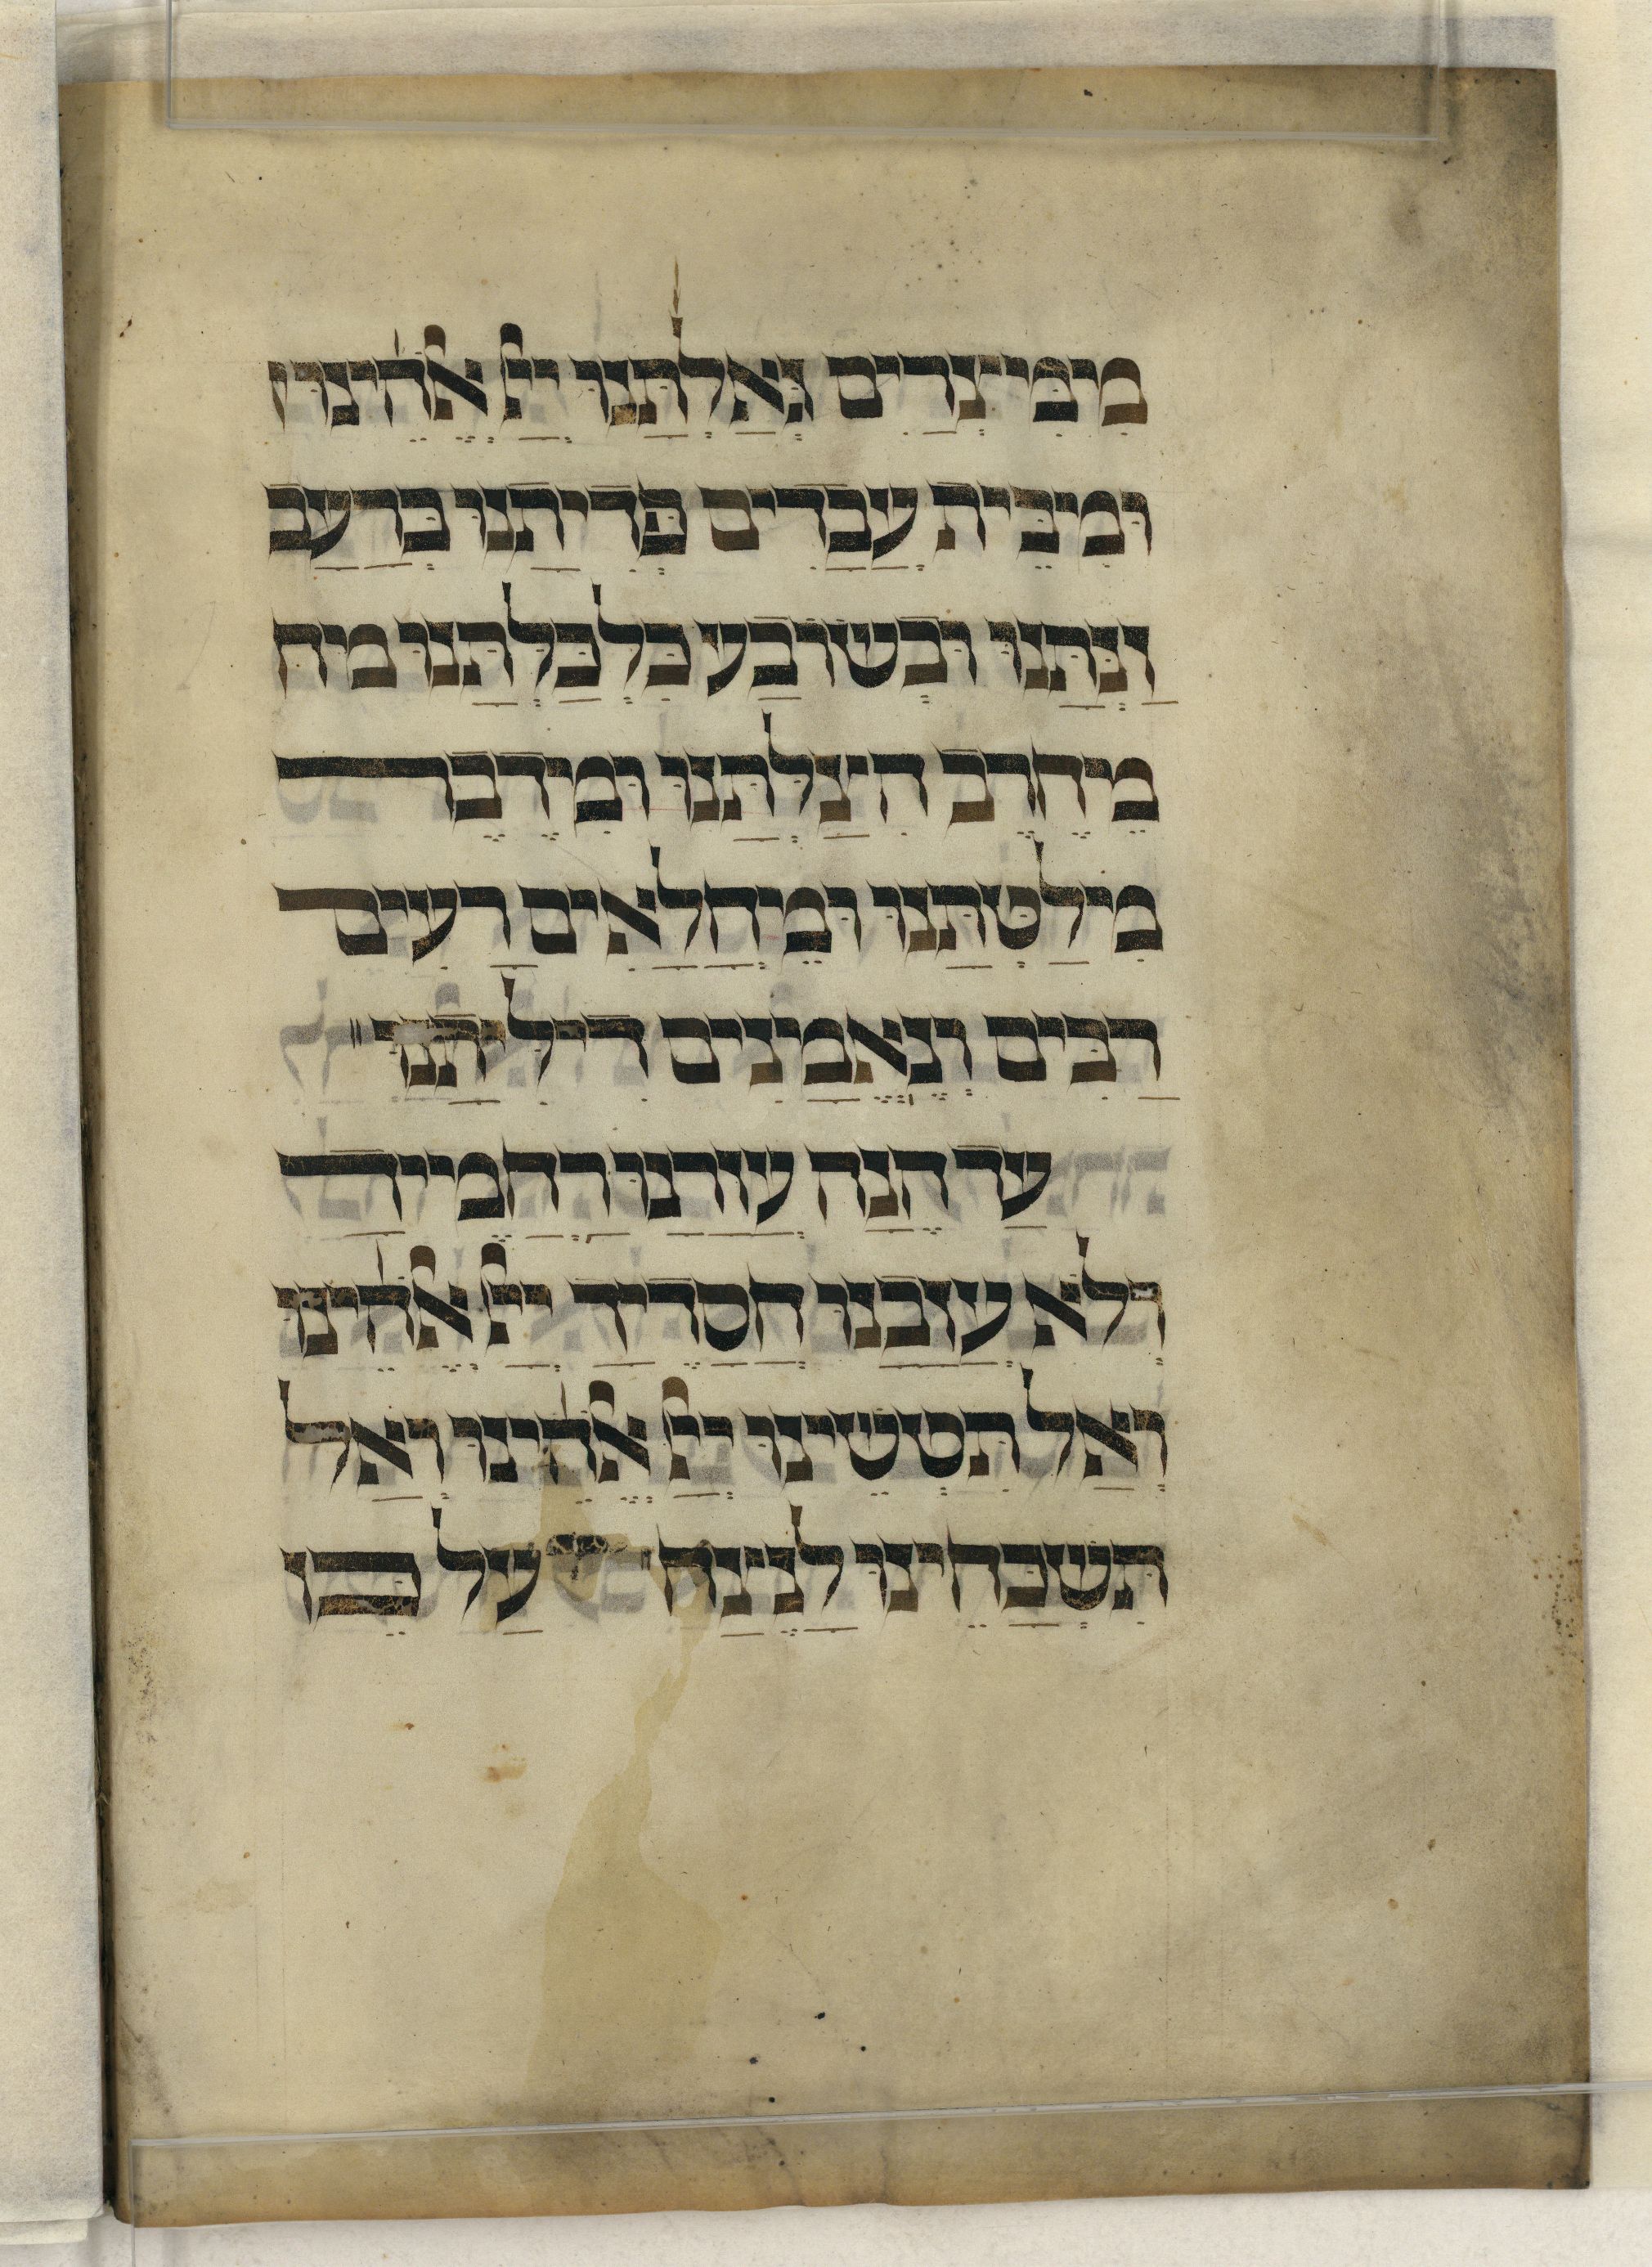 מִימִּיצְרַיִם גְּאַלְתָּנוּ יְיָ אֱלֹהֵינוּ ו
וּמִיבֵּית עֲבָדִים פְּדִיתָנוּ בְּרָעָב
זַנְתָּנוּ וּבְשׂוֹבַע כִּלְכַּלְתָּנוּ מיח
מֵיחֶרֶב הִיצַלְתָּנוּ וּמִידֶבֶר
מִילַטְתָּנוּ וּמֵיחֳלָאִים רָעִים
רַבִּים וְנֶאֱמָינִים דִילִיתָנוּ
עַד הֵנָה עֲזָרוּנוּ רַחֲמֶייךָ
וְלֹא עֲזָבוּנוּ חֲסָדֶיךָ יְיָ אֱלֹהֵינוּ
וְאַל תִּטְּשֵׁינוּ יְיָ אֱלֹהֵינוּ וְאַל
תִּשְׁכָּחֵינוּ לָנֶיצַח עַל כֵּן ו